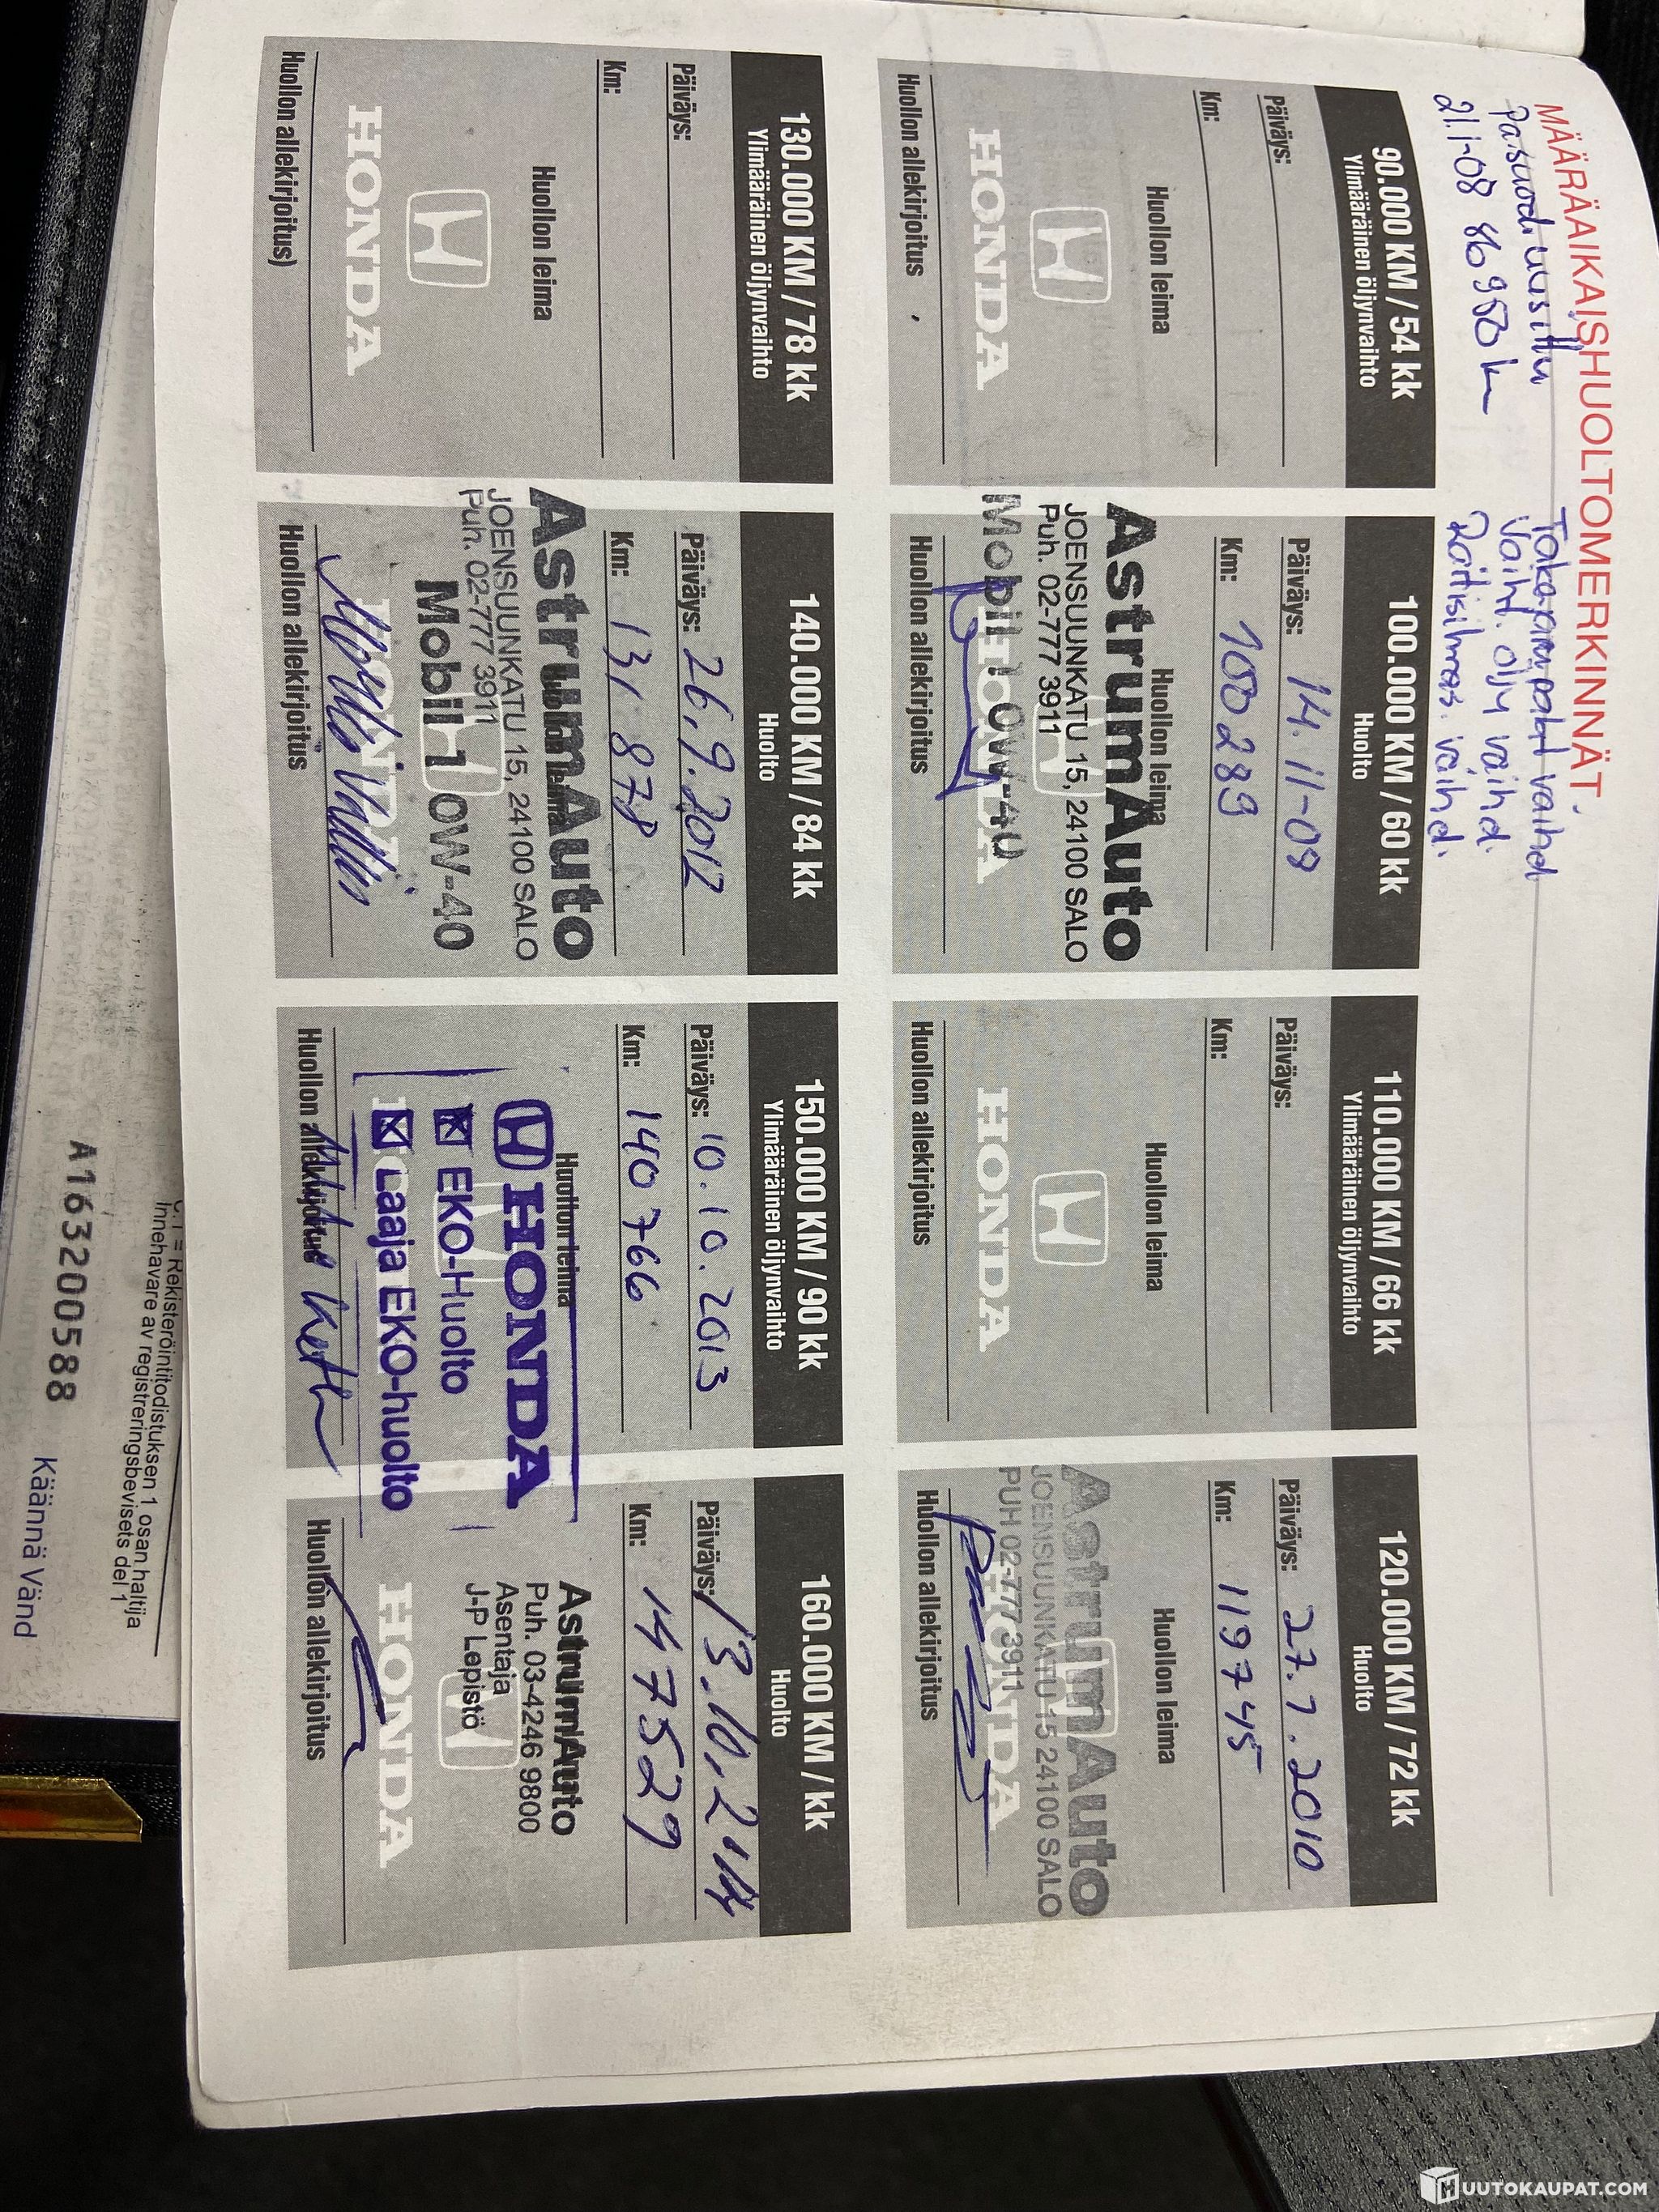 MÄÄRÄAIKAISHUOLTOMERKINNÄT
21.1-08 86950 k
Takajarrupalat vaihd
Vaiht. öljy vaihd.
Raitisilmas. vaihd.
90.000 KM / 54 kk
Ylimääräinen öljynvaihto
Päiväys:
Km:
Huollon leima
HONDA
Huollon allekirjoitus
100.000 KM / 60 kk
Huolto
Päiväys: 14.11-08
Km: 100289
Huollon leima
AstrumAuto
JOENSUUNKATU 15, 24100 SALO
Puh. 02-777 3911
Mobil 1 0W-40
HONDA
Huollon allekirjoitus
110.000 KM / 66 kk
Ylimääräinen öljynvaihto
Päiväys:
Km:
Huollon leima
HONDA
Huollon allekirjoitus
120.000 KM / 72 kk
Huolto
Päiväys: 27.7.2010
Km: 119745
Huollon leima
AstrumAuto
JOENSUUNKATU 15 24100 SALO
PUH 02-777 3911
HONDA
Huollon allekirjoitus
130.000 KM / 78 kk
Ylimääräinen öljynvaihto
Päiväys:
Km:
Huollon leima
HONDA
Huollon allekirjoitus)
140.000 KM / 84 kk
Huolto
Päiväys: 26.9.2012
Km: 131878
AstrumAuto
JOENSUUNKATU 15, 24100 SALO
Puh. 02-777 3911
Mobil 1 0W-40
HONDA
Huollon allekirjoitus
150.000 KM / 90 kk
Ylimääräinen öljynvaihto
Päiväys: 10.10.2013
Km: 140766
Huollon leima
HONDA
EKO-Huolto
Laaja EKO-huolto
Huollon allekirjoitus
160.000 KM / kk
Huolto
Päiväys: 13.10.2014
Km: 147529
AstrumAuto
Puh. 03-4246 9800
Asentaja
J-P Lepistö
HONDA
Huollon allekirjoitus
C.1 = Rekisteröintitodistuksen 1. osan haltija
Innehavare av registreringsbevisets del 1
A163200588
Käännä Vänd
HUUTOKAUPAT.COM